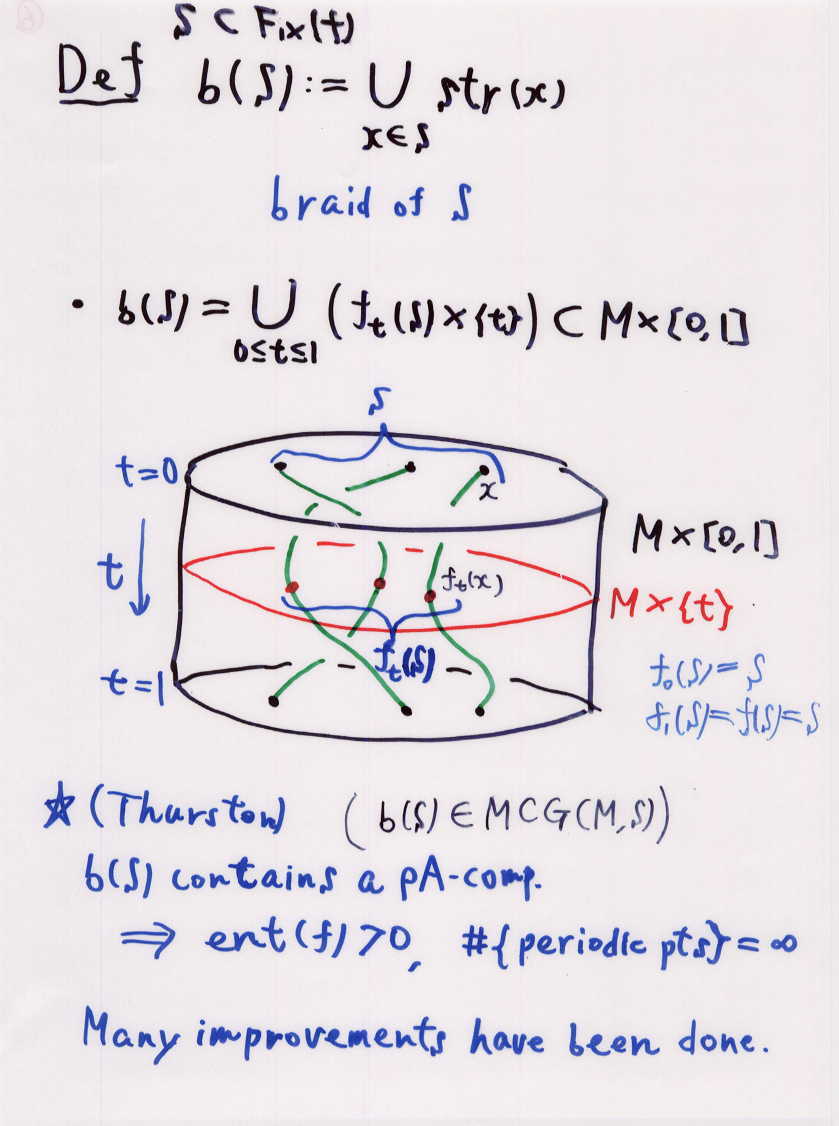 S ⊂ Fix(f)
Def b(S) := ∪ str(x)
x∈S
braid of S
• b(S) = ∪ (f_t(S)×{t}) ⊂ M×[0,1]
0≤t≤1
S
t=0
x
M×[0,1]
t
f_t(x)
M×{t}
f_t(S)
f_0(S) = S
t=1
f_1(S) = f(S) = S
☆ (Thurston) (b(S) ∈ MCG(M,S))
b(S) contains a pA-comp.
⇒ ent(f) > 0, #{periodic pts} = ∞
Many improvements have been done.